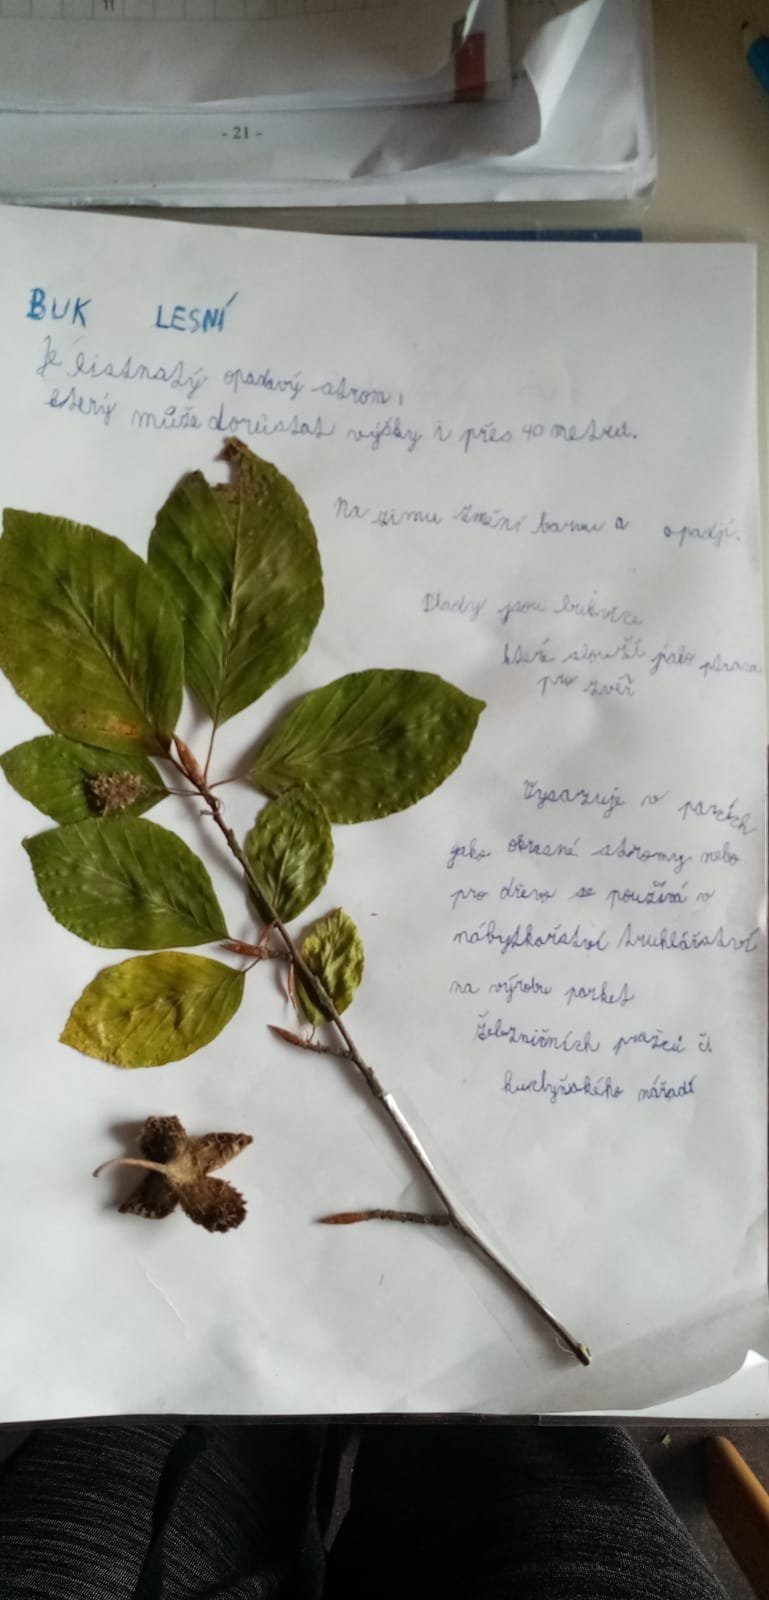 11
- 21 -
BUK LESNÍ
Je listnatý opadavý strom,
který může dorůstat výšky i přes 40 metrů.
Na zimu změní barvu a opadjí.
Plody jsou bukvice
které slouží jako
pro zvěř
Vysazuje v parcích
jako okrasné stromy nebo
pro dřevo se používá v
nábytkářství truhlářství
na výrobu parket
železničních pražců či
kuchyňského nářadí